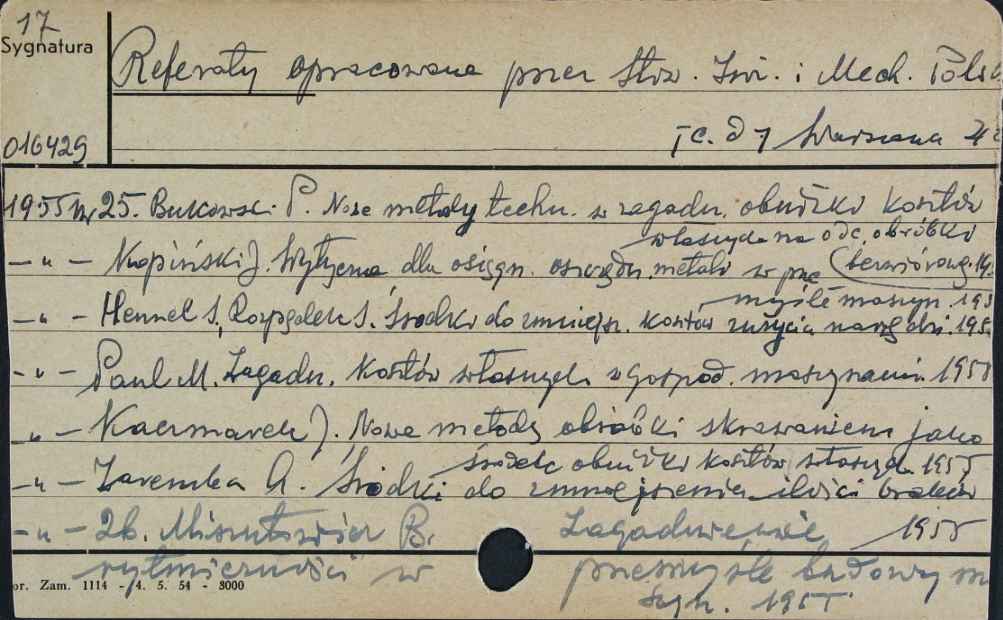 17
Sygnatura
Referaty opracowane przez Stow. Inż. i Mech. Pols
T C. d 7 Warszawa
016429
1955 Nr 25. Bukowski P. Nowe metody techn. w zagadn. obniżki kosztów
własnych na odc. obróbki
— " — Kapiński J. Wytyczne dla osiągn. oszczędn. metali w prze (bezwiórowej. 19
myśle maszyn. 195
— " — Hennel S, Rozpędek S. Środki do zmniejsz. kosztów zużycia narzędzi. 195
— " — Paul M. Zagadn. kosztów własnych w gospod. maszynami. 1955
— " — Kaczmarek J. Nowe metody obróbki skrawaniem jako
środek obniżki kosztów własnych 1955
— " — Zaremba A. Środki do zmniejszenia ilości braków
— " — 26. B. Zagadnienie 1955
rytmiczności w przemyśle budowy m
1955
or. Zam. 1114 - 4. 5. 54 - 3000